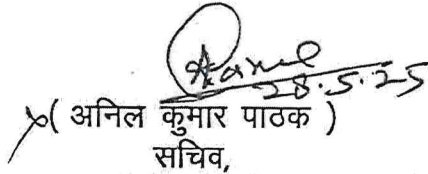 28.5.25
( अनिल कुमार पाठक )
सचिव,